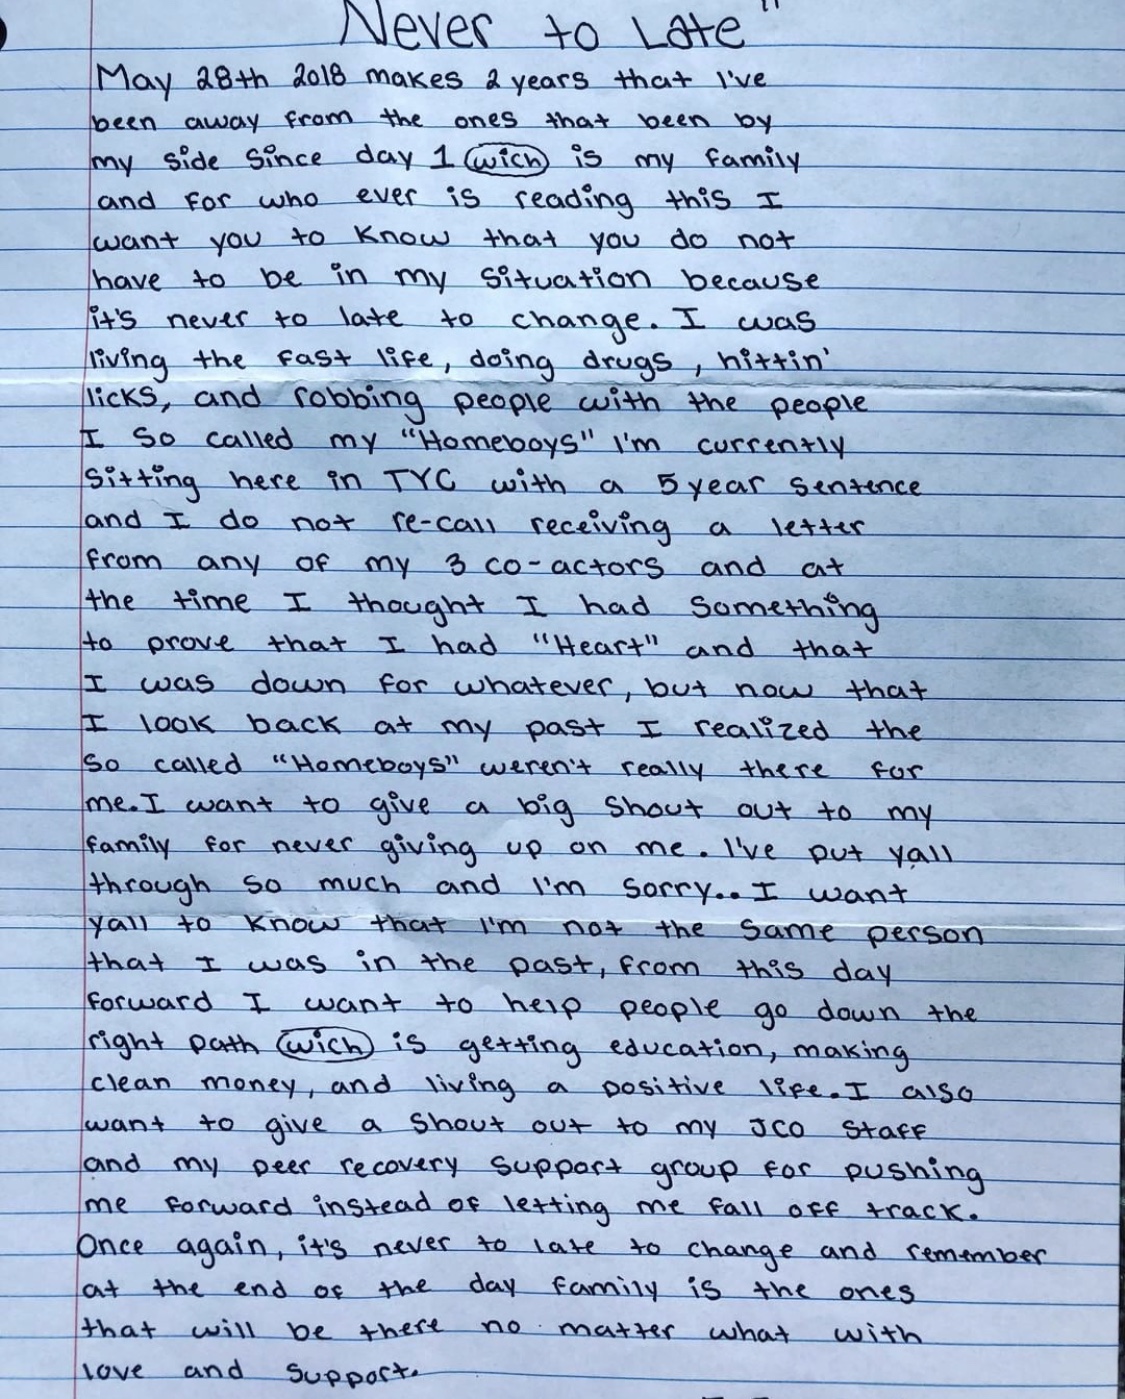 Never to Late"
May 28th 2018 makes 2 years that I've
been away from the ones that been by
my side since day 1 wich is my family
and for who ever is reading this I
want you to know that you do not
have to be in my situation because
it's never to late to change. I was
living the fast life, doing drugs, hittin'
licks, and robbing people with the people
I so called my "Homeboys" I'm currently
sitting here in TYC with a 5 year sentence
and I do not re-call receiving a letter
from any of my 3 co-actors and at
the time I thought I had something
to prove that I had "Heart" and that
I was down for whatever, but now that
I look back at my past I realized the
so called "Homeboys" weren't really there for
me. I want to give a big shout out to my
family for never giving up on me. I've put yall
through so much and I'm sorry.. I want
yall to know that I'm not the same person
that I was in the past, from this day
forward I want to help people go down the
right path wich is getting education, making
clean money, and living a positive life. I also
want to give a shout out to my JCO staff
and my peer recovery support group for pushing
me forward instead of letting me fall off track.
Once again, it's never to late to change and remember
at the end of the day family is the ones
that will be there no matter what with
love and support.